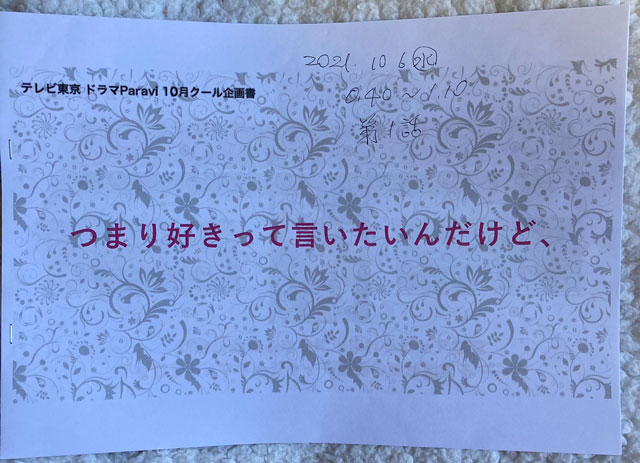 2021. 10 6 ㊌
テレビ東京 ドラマParavi 10月クール企画書
0.40〜1.10
第1話
つまり好きって言いたいんだけど、